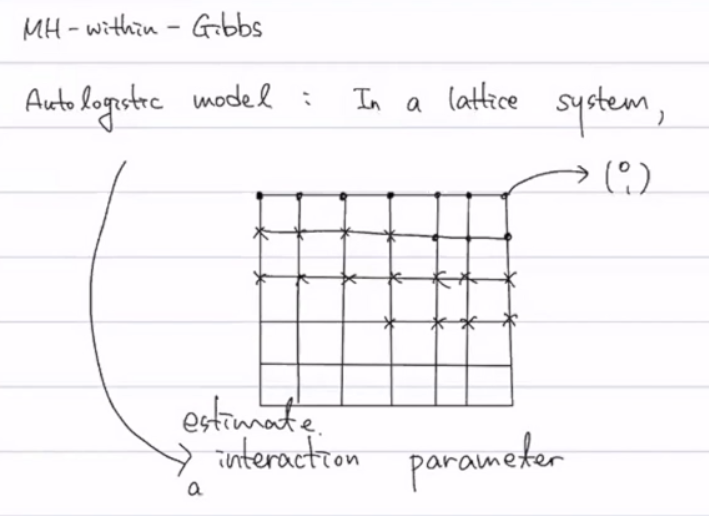 MH-within-Gibbs
Autologistic model : In a lattice system,
(0
1)
estimate.
a interaction parameter